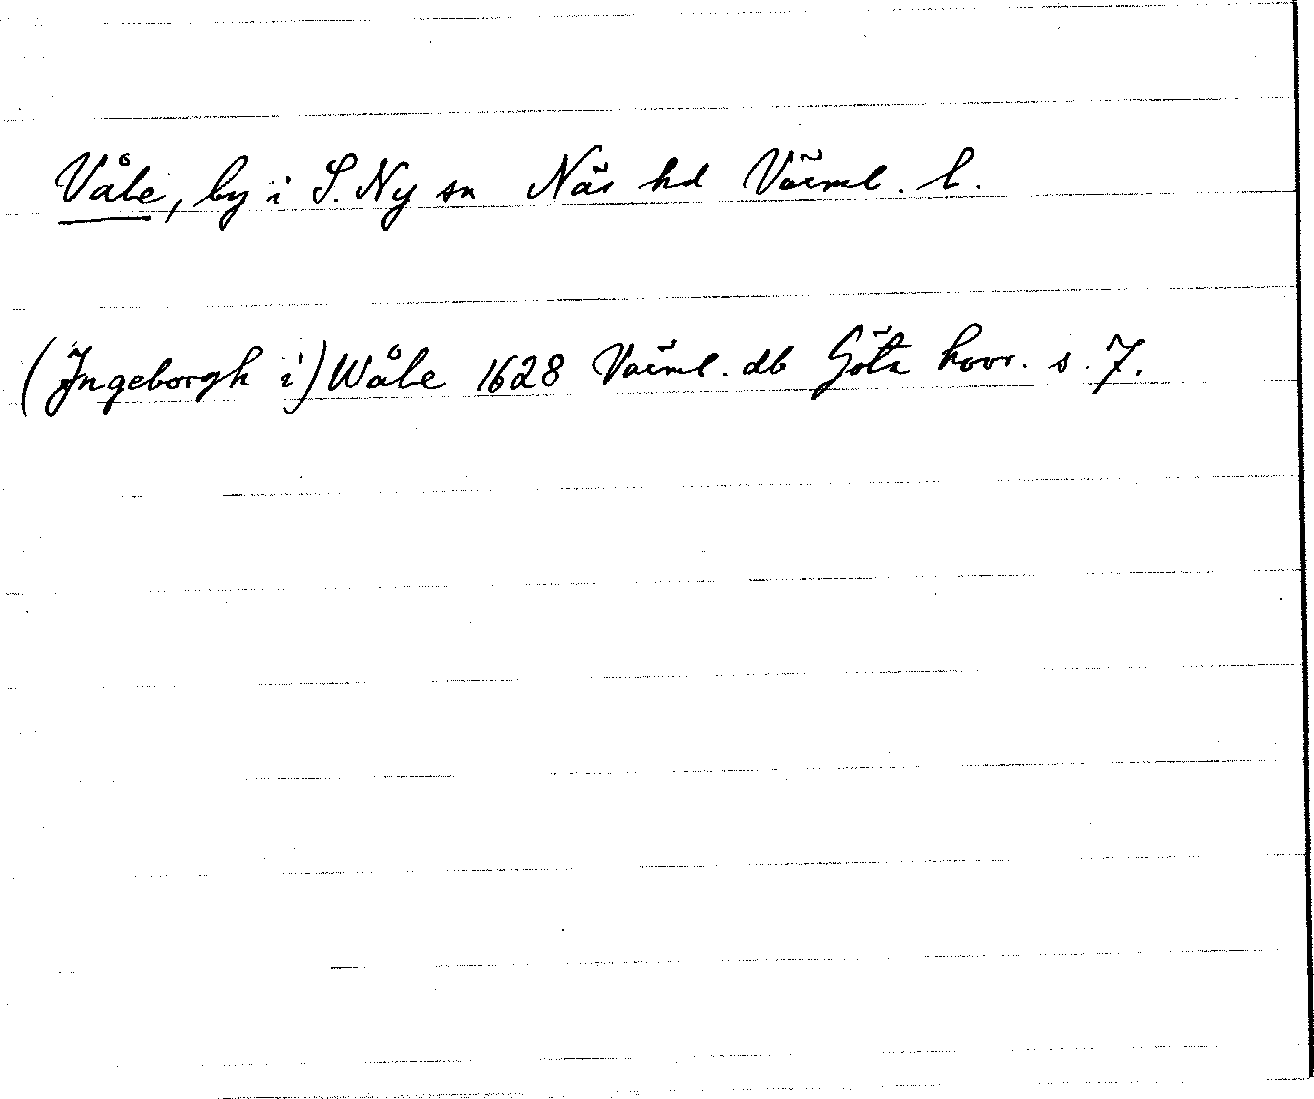 Våle, by i S. Ny sn Näs hd Värml. l.
(Ingeborgh i) Wåle 1628 Värml. db Göta hovr. s. 7.